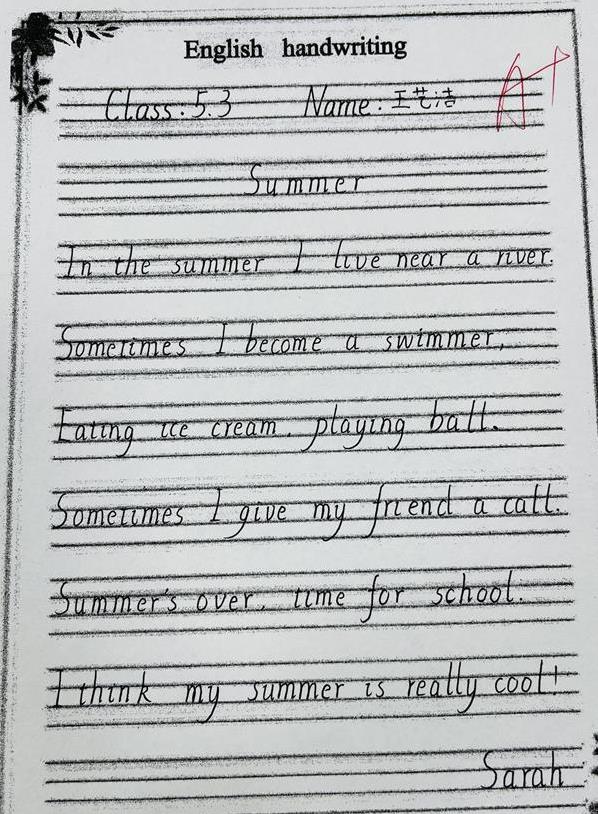 English handwriting
Class: 5.3 Name: 王艺洁 A+
Summer
In the summer I live near a river.
Sometimes I become a swimmer,
Eating ice cream, playing ball.
Sometimes I give my friend a call.
Summer's over, time for school.
I think my summer is really cool!
Sarah